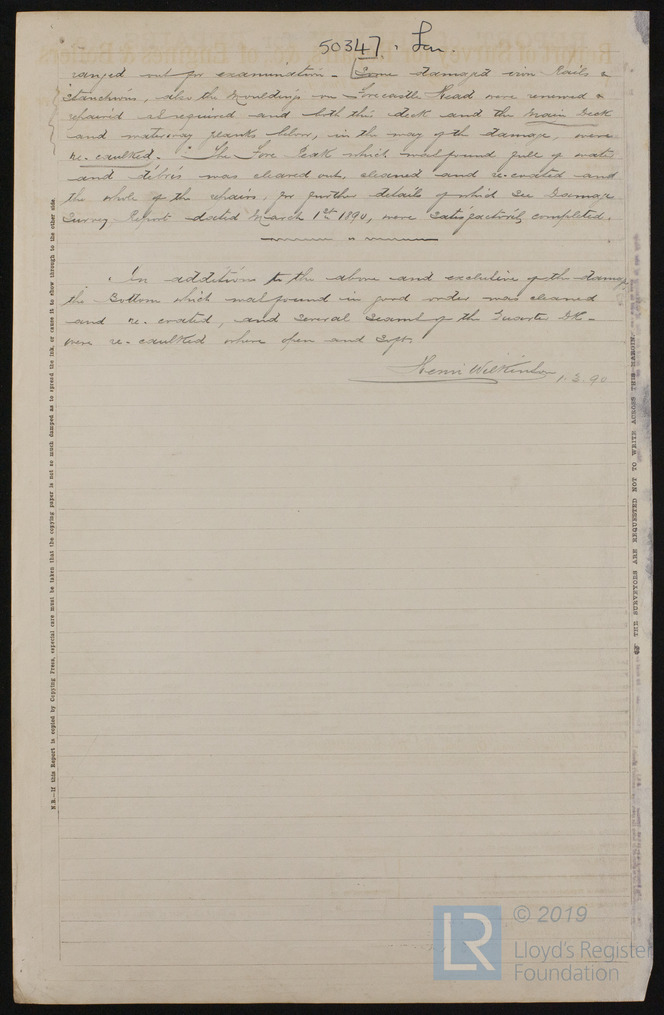 50347. Lon.
ranged out for examination. Some damaged iron Rails &
Stanchions, also the Mouldings on Forecastle Head were renewed &
repaired as required and both this deck and the Main Deck
and waterway planks below, in the way of the damage, were
re-caulked. The Fore Peak which was found full of water
and debris was cleared out, cleaned and re-coated and
the whole of the repairs, for further details of which See Damage
Survey Report dated March 1st 1890, were Satisfactorily completed.
In addition to the above and exclusive of the damage
the Bottom which was found in good order was cleaned
and re-coated, and several seams of the Quarter Dk
were re-caulked where open and soft.
Henri Wilkinson 1.3.90
N.B.—If this Report is copied by Copying Press, especial care must be taken that the copying paper is not so much damped as to spread the ink, or cause it to show through to the other side.
THE SURVEYORS ARE REQUESTED NOT TO WRITE ACROSS THIS MARGIN.
LR
© 2019
Lloyd's Register
Foundation